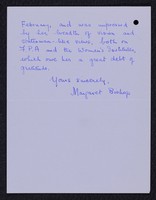 February, and was impressed
by her breadth of vision and
statesman-like views, both on
F.P.A and the Women's Institutes,
which owe her a great debt of
gratitude.
Yours sincerely,
Margaret Bishop